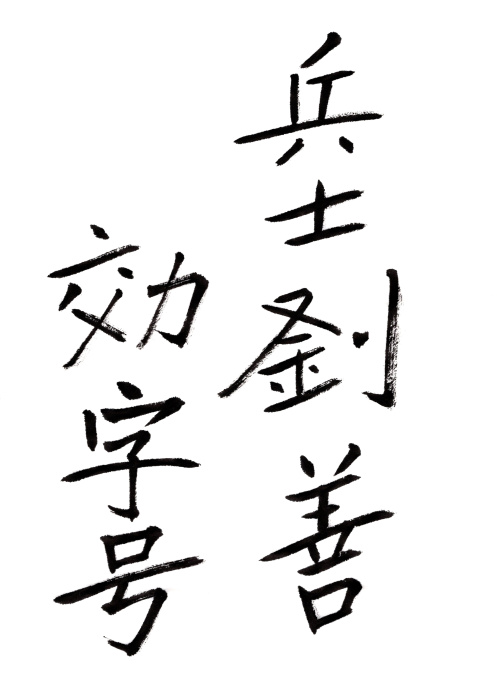 兵士劉善
効字号